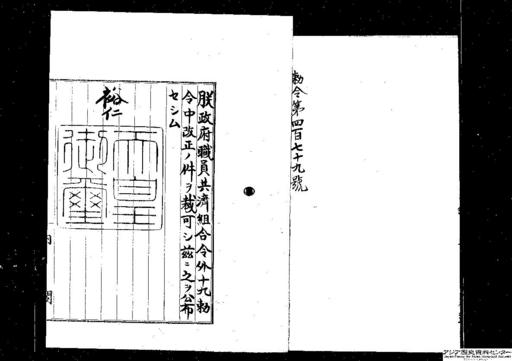 勅令第四百七十九號
朕政府職員共濟組合令外十九勅
令中改正ノ件ヲ裁可シ茲ニ之ヲ公布
セシム
裕仁
天皇
御璽
内閣
アジア歴史資料センター